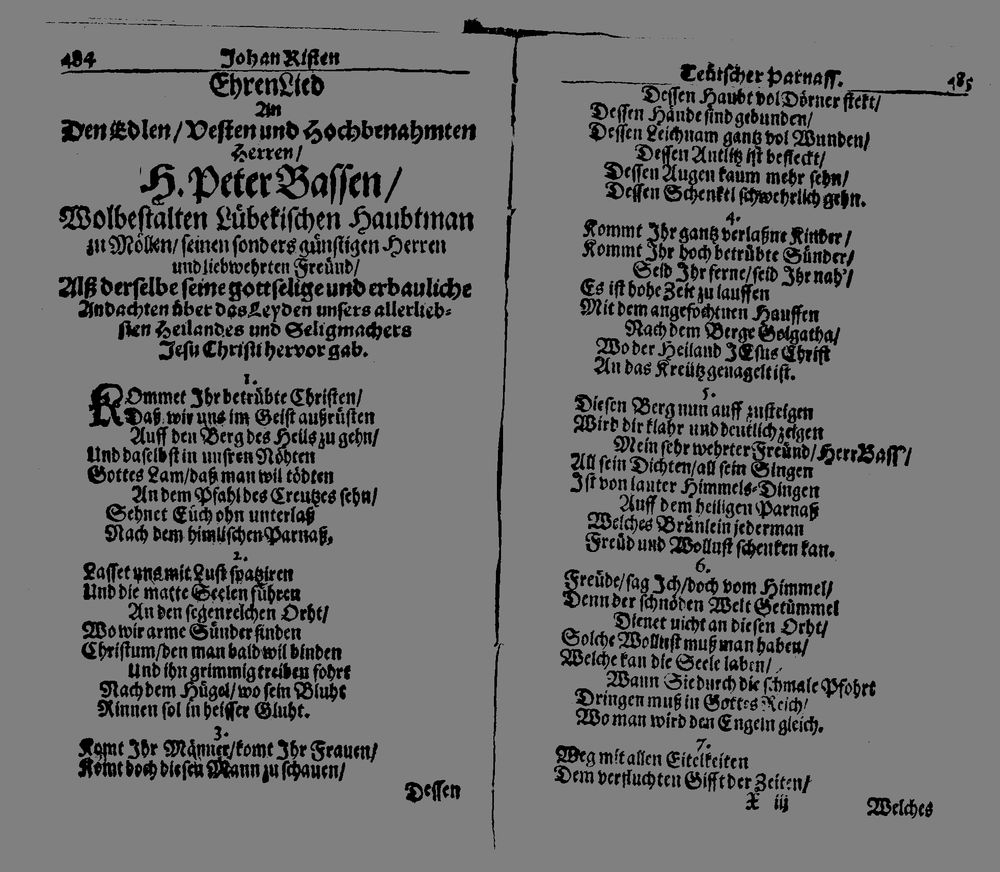 484 Johan Risten
EhrenLied
An
Den Edlen/ Vesten und Hochbenahmten
Herren/
H. Peter Bassen/
Wolbestalten Lübekischen Haubtman
zu Möllen/ seinen sonders günstigen Herren
und liebwehrten Freünd/
Alß derselbe seine gottselige und erbauliche
Andachten über das Leyden unsers allerlieb-
sten Heilandes und Seligmachers
Jesu Christi hervor gab.
1.
KOmmet Ihr betrübte Christen/
Daß wir uns im Geist außrüsten
Auff den Berg des Heils zu gehn/
Und daselbst in unsren Nöhten
Gottes Lam/ daß man wil tödten
An dem Pfahl des Creutzes sehn/
Sehnet Eüch ohn unterlaß
Nach dem himlischen Parnaß.
2.
Lasset uns mit Lust spatziren
Und die matte Seelen führen
An den segenreichen Orht/
Wo wir arme Sünder finden
Christum/ den man bald wil binden
Und ihn grimmig treiben fohrt
Nach dem Hügel/ wo sein Bluht
Rinnen sol in heisser Gluht.
3.
Komt Ihr Männer/ komt Ihr Frauen/
Komt doch diesen Mann zu schauen/
Dessen
Teütscher Parnass. 485
Dessen Haubt vol Dörner stekt/
Dessen Hände sind gebunden/
Dessen Leichnam gantz vol Wunden/
Dessen Antlitz ist befleckt/
Dessen Augen kaum mehr sehn/
Dessen Schenkel schwehrlich gehn.
4.
Kommt Ihr gantz verlaßne Kinder/
Kommt Ihr hoch betrübte Sünder/
Seid Ihr ferne/ seid Ihr nah'/
Es ist hohe Zeit zu lauffen
Mit dem angefochtnen Hauffen
Nach dem Berge Golgatha/
Wo der Heiland JEsus Christ
An das Kreütz genagelt ist.
5.
Diesen Berg nun auff zusteigen
Wird dir klahr und deutlich zeigen
Mein sehr wehrter Freünd/ Herr Bass'/
All sein Dichten/ all sein Singen
Ist von lauter Himmels-Dingen
Auff dem heiligen Parnaß
Welches Brünlein jederman
Freüd und Wollust schenken kan.
6.
Freüde/ sag Ich/ doch vom Himmel/
Denn der schnöden Welt Getümmel
Dienet nicht an diesen Orht/
Solche Wollust muß man haben/
Welche kan die Seele laben/
Wann Sie durch die schmale Pfohrt
Dringen muß in Gottes Reich/
Wo man wird den Engeln gleich.
7.
Weg mit allen Eitelkeiten
Dem verfluchten Gifft der Zeiten/
X iij Welches